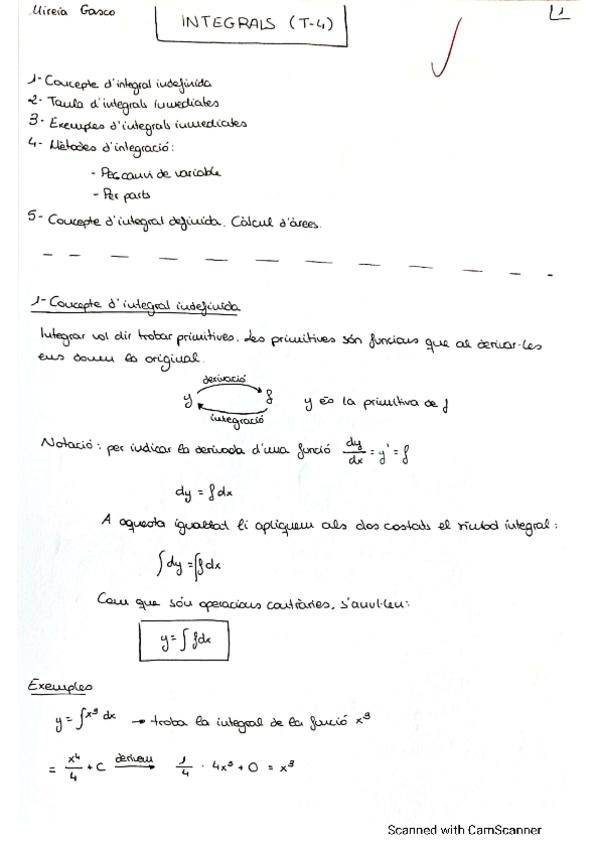 Mireia Gasco
INTEGRALS (T-4)
1
1- Concepte d'integral indefinida
2- Taula d'integrals immediates
3- Exemples d'integrals immediates
4- Mètodes d'integració:
- Per canvi de variable
- Per parts
5- Concepte d'integral definida. Càlcul d'àrees.
1- Concepte d'integral indefinida
Integrar vol dir trobar primitives. Les primitives són funcions que al derivar-les
ens donen la original.
derivació
y f y és la primitiva de f
integració
Notació: per indicar la derivada d'una funció dy/dx = y' = f
dy = f dx
A aquesta igualtat li apliquem als dos costats el símbol integral:
∫dy = ∫f dx
Com que són operacions contràries, s'anul·len:
y = ∫ f dx
Exemples
y = ∫x³ dx → troba la integral de la funció x³
= x⁴/4 + C derivem → 1/4 · 4x³ + 0 = x³
Scanned with CamScanner